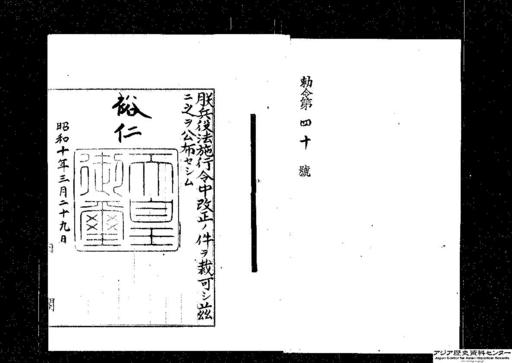 勅令第四十號
朕兵役法施行令中改正ノ件ヲ裁可シ茲
ニ之ヲ公布セシム
裕仁
天皇
御璽
昭和十年三月二十九日
内閣
アジア歴史資料センター
Japan Center for Asian Historical Records